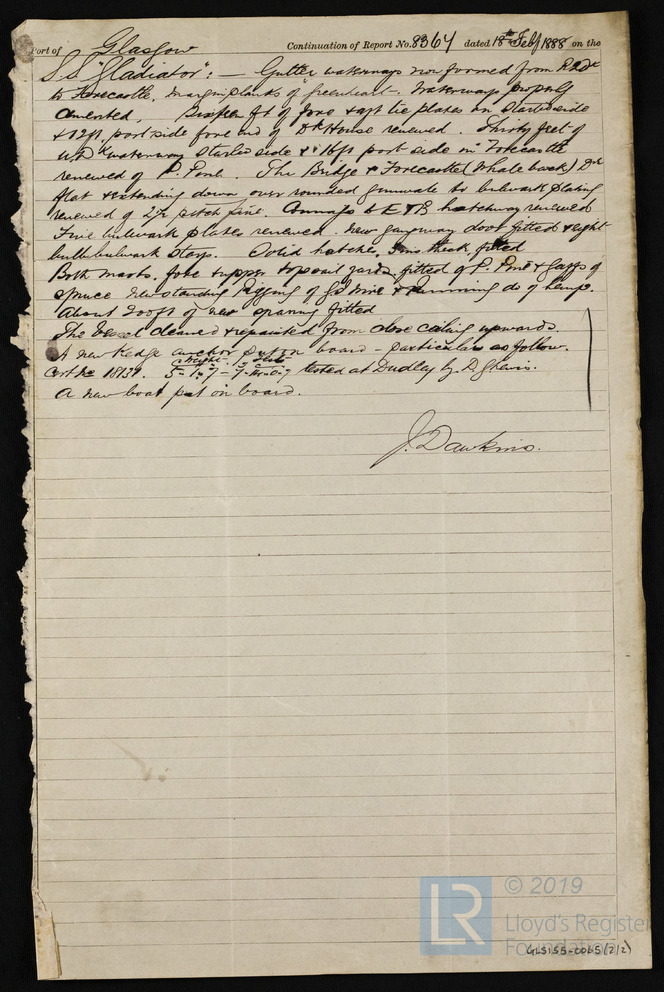 Port of Glasgow Continuation of Report No. 8364 dated 18th Feby 1888 on the
S.S. "Gladiator": — Gutter waterways now formed from R.Q.Dk
to Forecastle, margin planks of greenheart. Waterways properly
cemented. ft of fore & aft tie plates on starbd side
& 12ft port side fore end of Dk House renewed. Thirty feet of
U.Dk waterway starbd side & 16ft port side in Forecastle
renewed of P. Pine. The Bridge & Forecastle (whale back) Dk
flat & extending down over rounded gunwale to bulwark plating
renewed of 2½ pitch pine. Coamings to E & B hatchway renewed
Five bulwark plates renewed. New gangway door fitted & eight
bulwark stays. Solid hatches, thick, fitted
Both masts, fore & topsail yards, fitted of P. Pine & Gaffs of
spruce. New standing Rigging of Gd Wire & Running do of hemp.
About 200ft of new fitted
The Vessel cleaned & repainted from close ceiling upwards.
A new Kedge anchor put on board - particulars as follow.
Weight Test
Cert No tested at Dudley by
A new boat put on board.
J. Dawkins.
LR © 2019
Lloyd's Register
Foundation
GLS155-0065 (2/2)